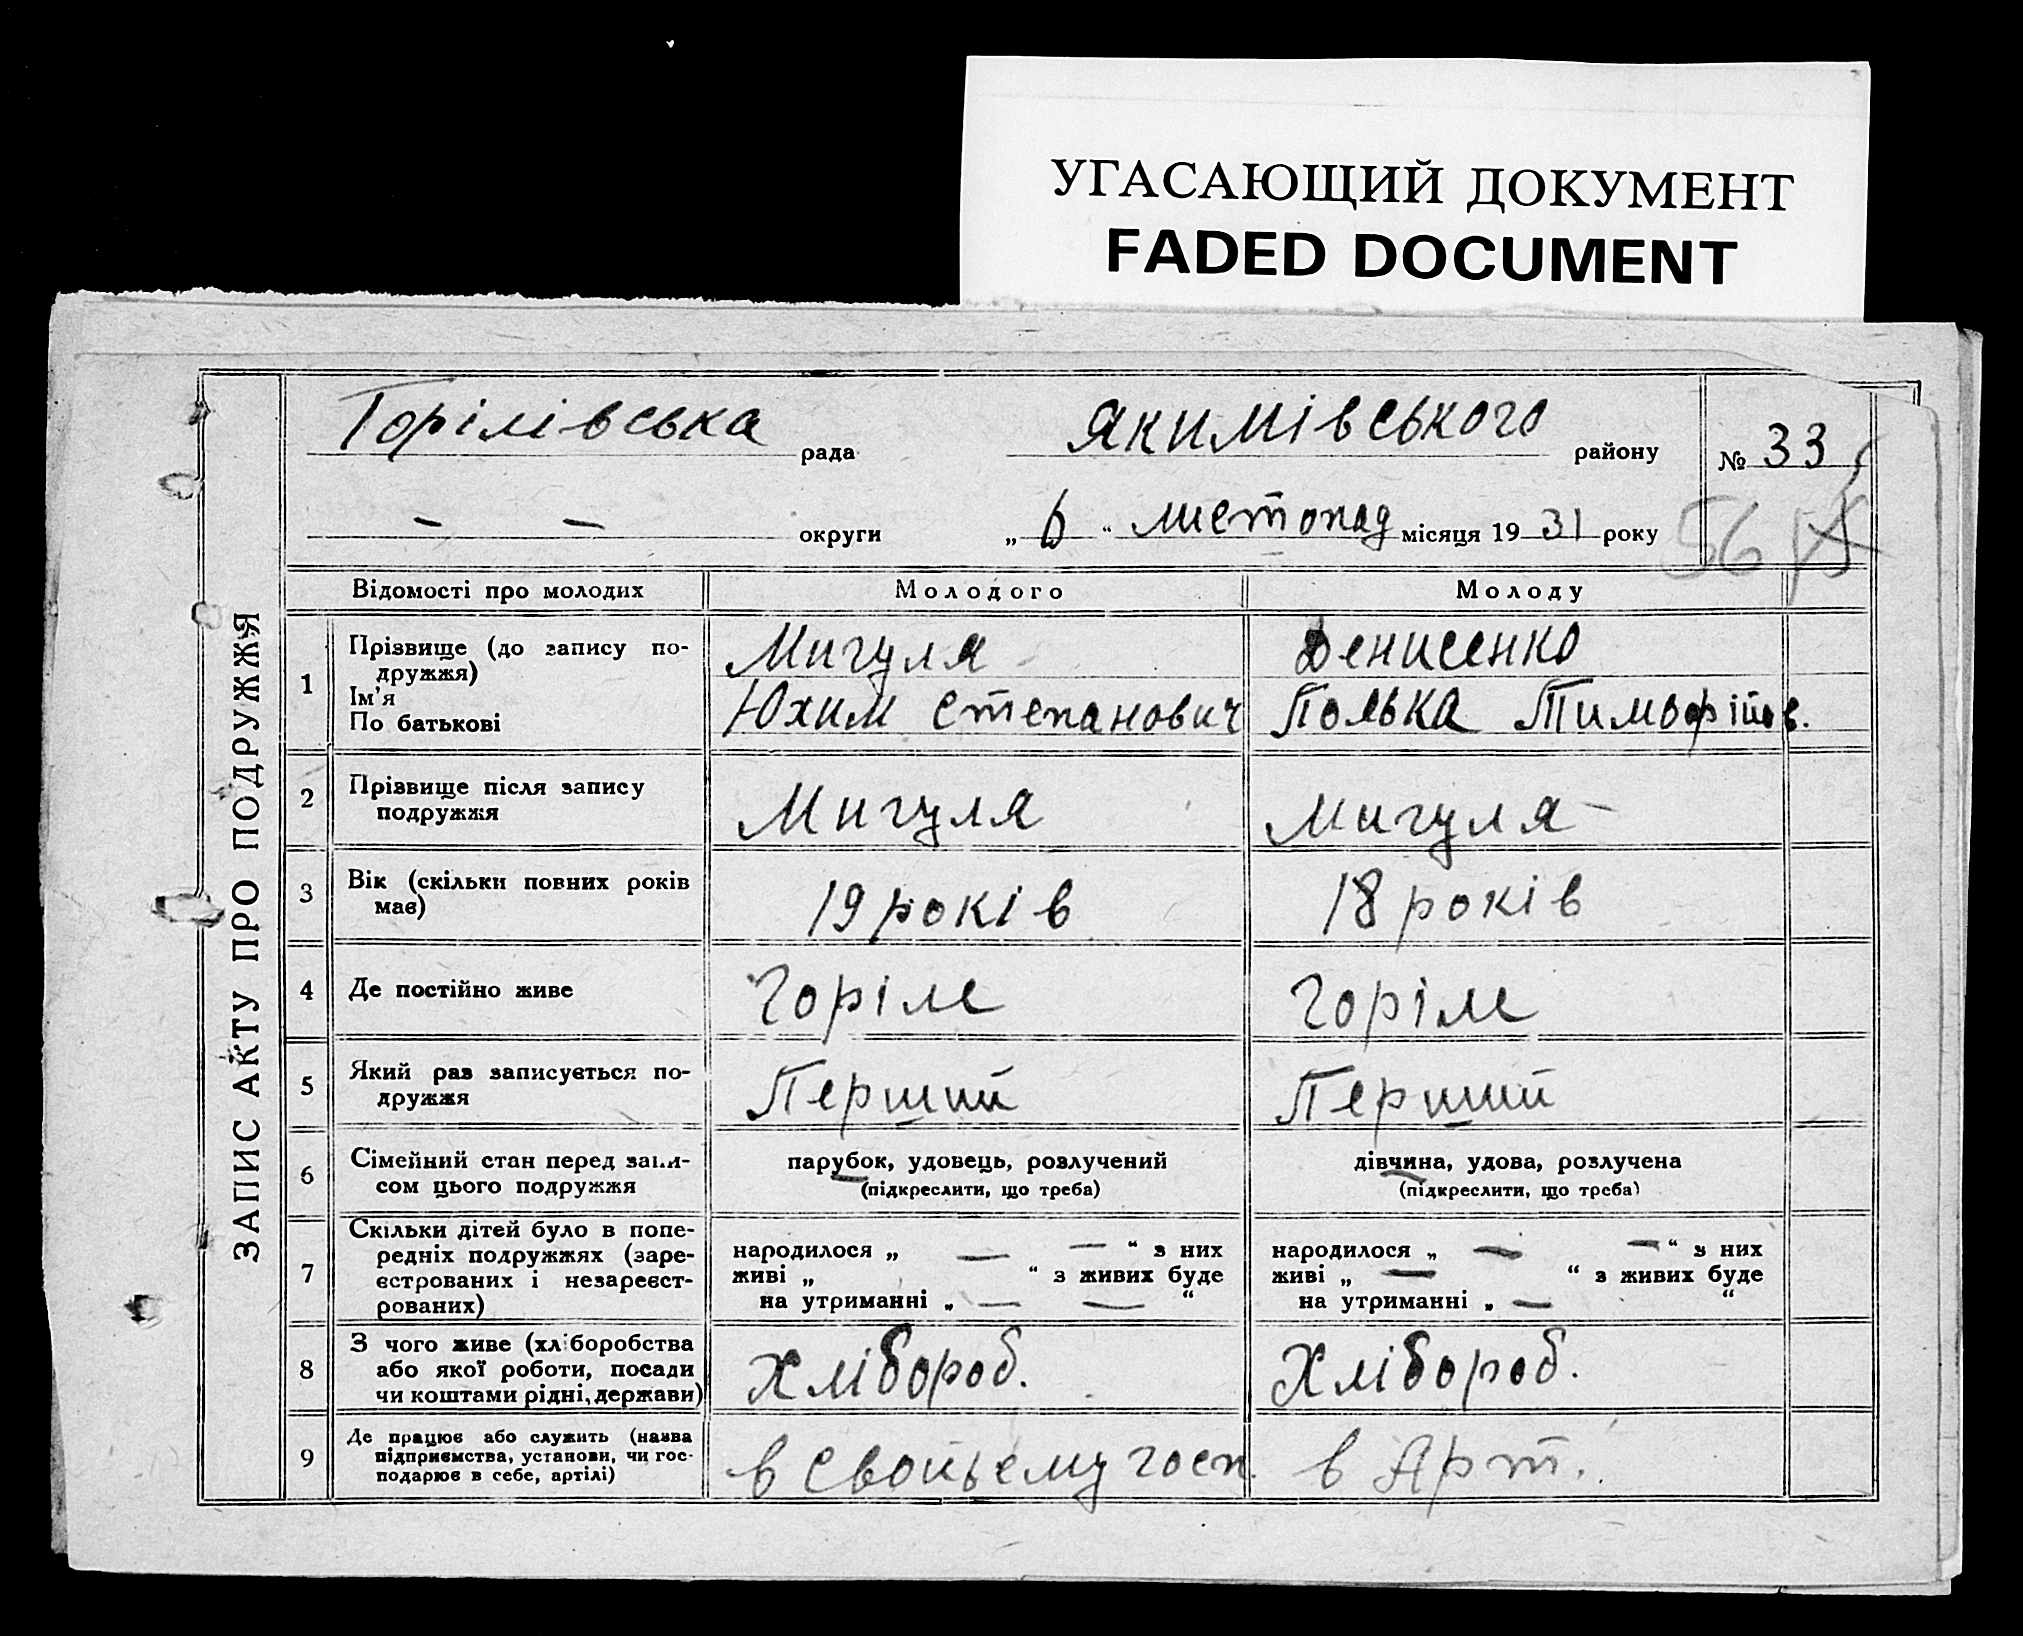 УГАСАЮЩИЙ ДОКУМЕНТ
FADED DOCUMENT
ЗАПИС АКТУ ПРО ПОДРУЖЖЯ
Горілівська рада Якимівського району № 33
— — округи „ 6 “ листопад місяця 1931 року
56
Відомості про молодих Молодого Молоду
1 Прізвище (до запису по-
дружжя) Мигуля Денисенко
Ім'я
По батькові Юхим Степанович Полька Тимофійов.
2 Прізвище після запису
подружжя Мигуля Мигуля
3 Вік (скільки повних років
має) 19 років 18 років
4 Де постійно живе Горіле Горіле
5 Який раз записується по-
дружжя Перший Перший
6 Сімейний стан перед запи-
сом цього подружжя
парубок, удовець, розлучений
(підкреслити, що треба)
дівчина, удова, розлучена
(підкреслити, що треба)
7 Скільки дітей було в попе-
редніх подружжях (заре-
єстрованих і незареєст-
рованих)
народилося „ — — “ з них
живі „ “ з живих буде
на утриманні „ — — “
народилося „ — — “ з них
живі „ — “ з живих буде
на утриманні „ — “
8 З чого живе (хліборобства
або якої роботи, посади
чи коштами рідні, держави)
Хлібороб. Хлібороб.
9 Де працює або служить (назва
підприємства, установи, чи гос-
подарює в себе, артілі)
в свойьему госп. в Арт.